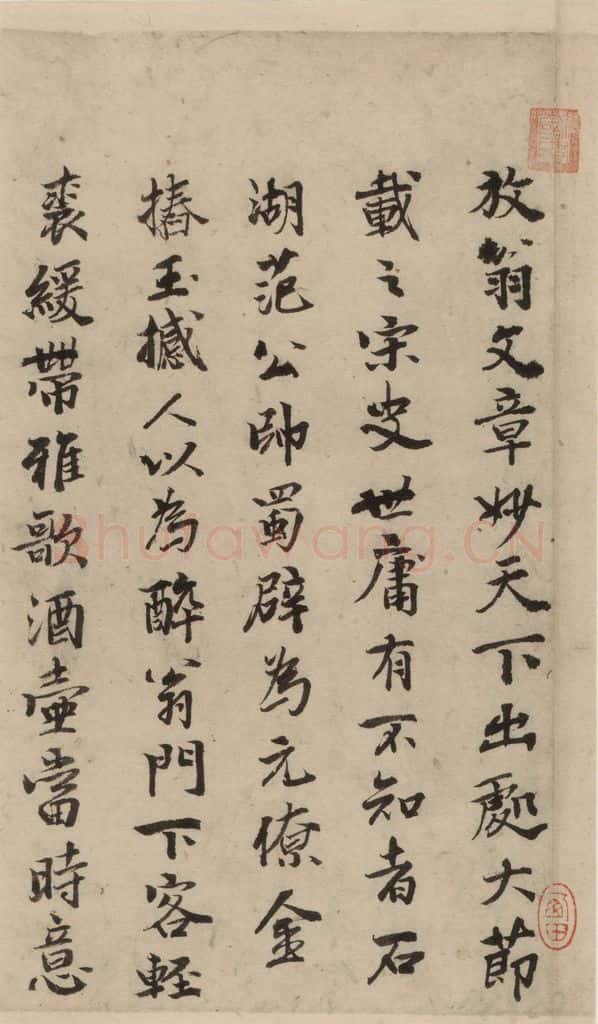 放翁文章妙天下出處大節
載之宋史世庸有不知者石
湖范公帥蜀辟為元僚金
摏玉撼人以為醉翁門下客輕
裘緩帶雅歌酒壺當時意
Shufawang.CN